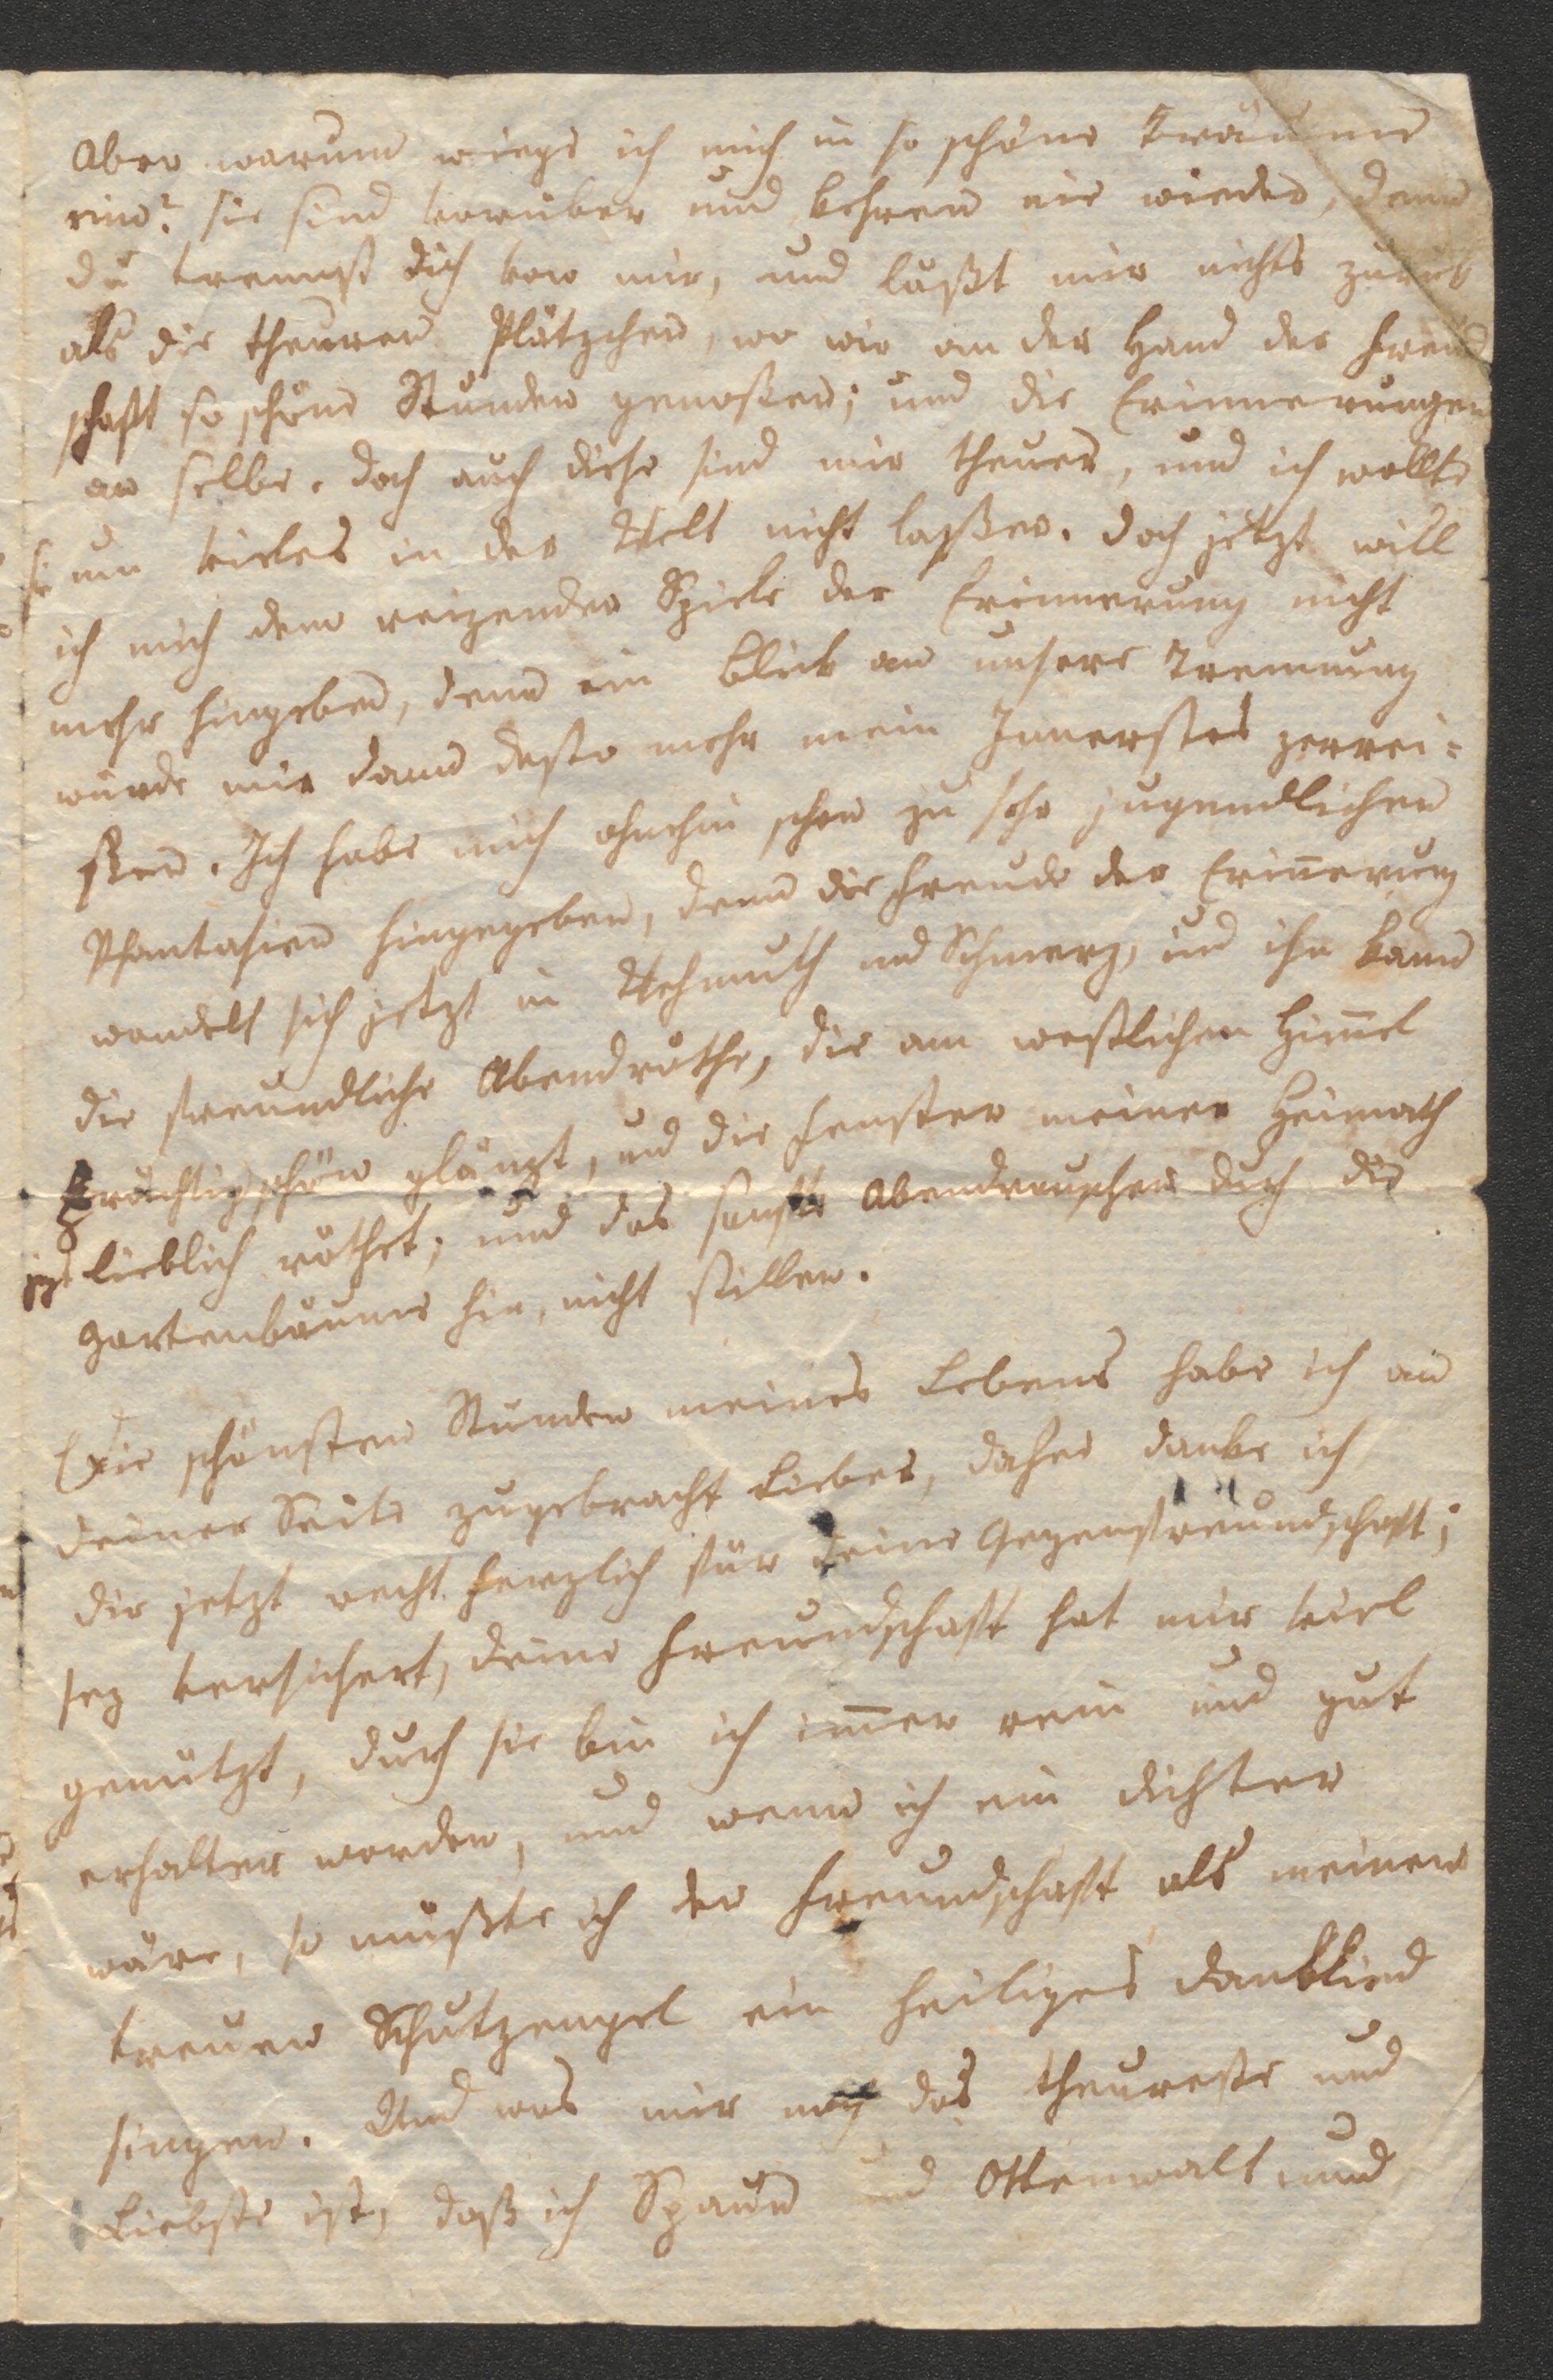 Aber warum wiege ich mich in so schöne Träume
ein? sie sind vorüber und kehren nie wieder, denn
du trennst dich von mir, und laßst mir nichts zurük
als die theuren Plätzchen, wo wir an der Hand der Freund
schaft so schöne Stunden genoßen; und die Erinnerungen
an selbe. doch auch diese sind mir theuer, und ich wollte
sie um vieles in der Welt nicht laßen. doch jetzt will
ich mich dem reizenden Spiele der Erinnerung nicht
mehr hingeben, denn ein Blick an unsere Trennung
würde mir dann desto mehr mein Innerstes zerrei=
ßen. Ich habe mich ohnehin schon zu sehr jugendlichen
Phantasien hingegeben, denn die Freude der Erinnerung
wandelt sich jetzt in Wehmuth und Schmerz, und ihn kann
die freundliche Abendröthe, die am westlichen Himmel
prächtigschön glänzt, und die Fenster meiner Heimath
jezt lieblich röthet; und das sanfte Abendrauschen durch die
Gartenbäume hin, nicht stillen.
Die schönsten Stunden meines Lebens habe ich an
deiner Seite zugebracht Lieber, daher danke ich
dir jetzt recht herzlich für deine Gegenfreundschaft;
sey versichert, deine Freundschaft hat mir viel
genützt, durch sie bin ich immer rein und gut
erhalten worden, und wenn ich ein Dichter
wäre, so müßte ich der Freundschaft als meinem
treuen Schutzengel ein heiliges Danklied
singen. Und was mir noch das theureste und
Liebste ist, daß ich Spaun und Ottenwalt und